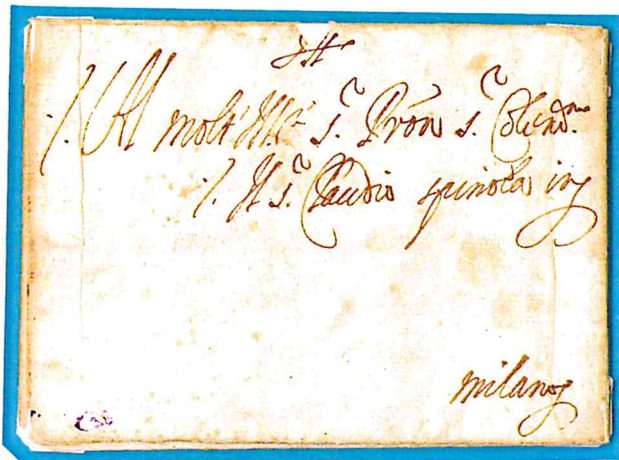 Al molt' Ill.re s.r Pron s.r Colend.mo
Il s.r Claudio spinola in
milano